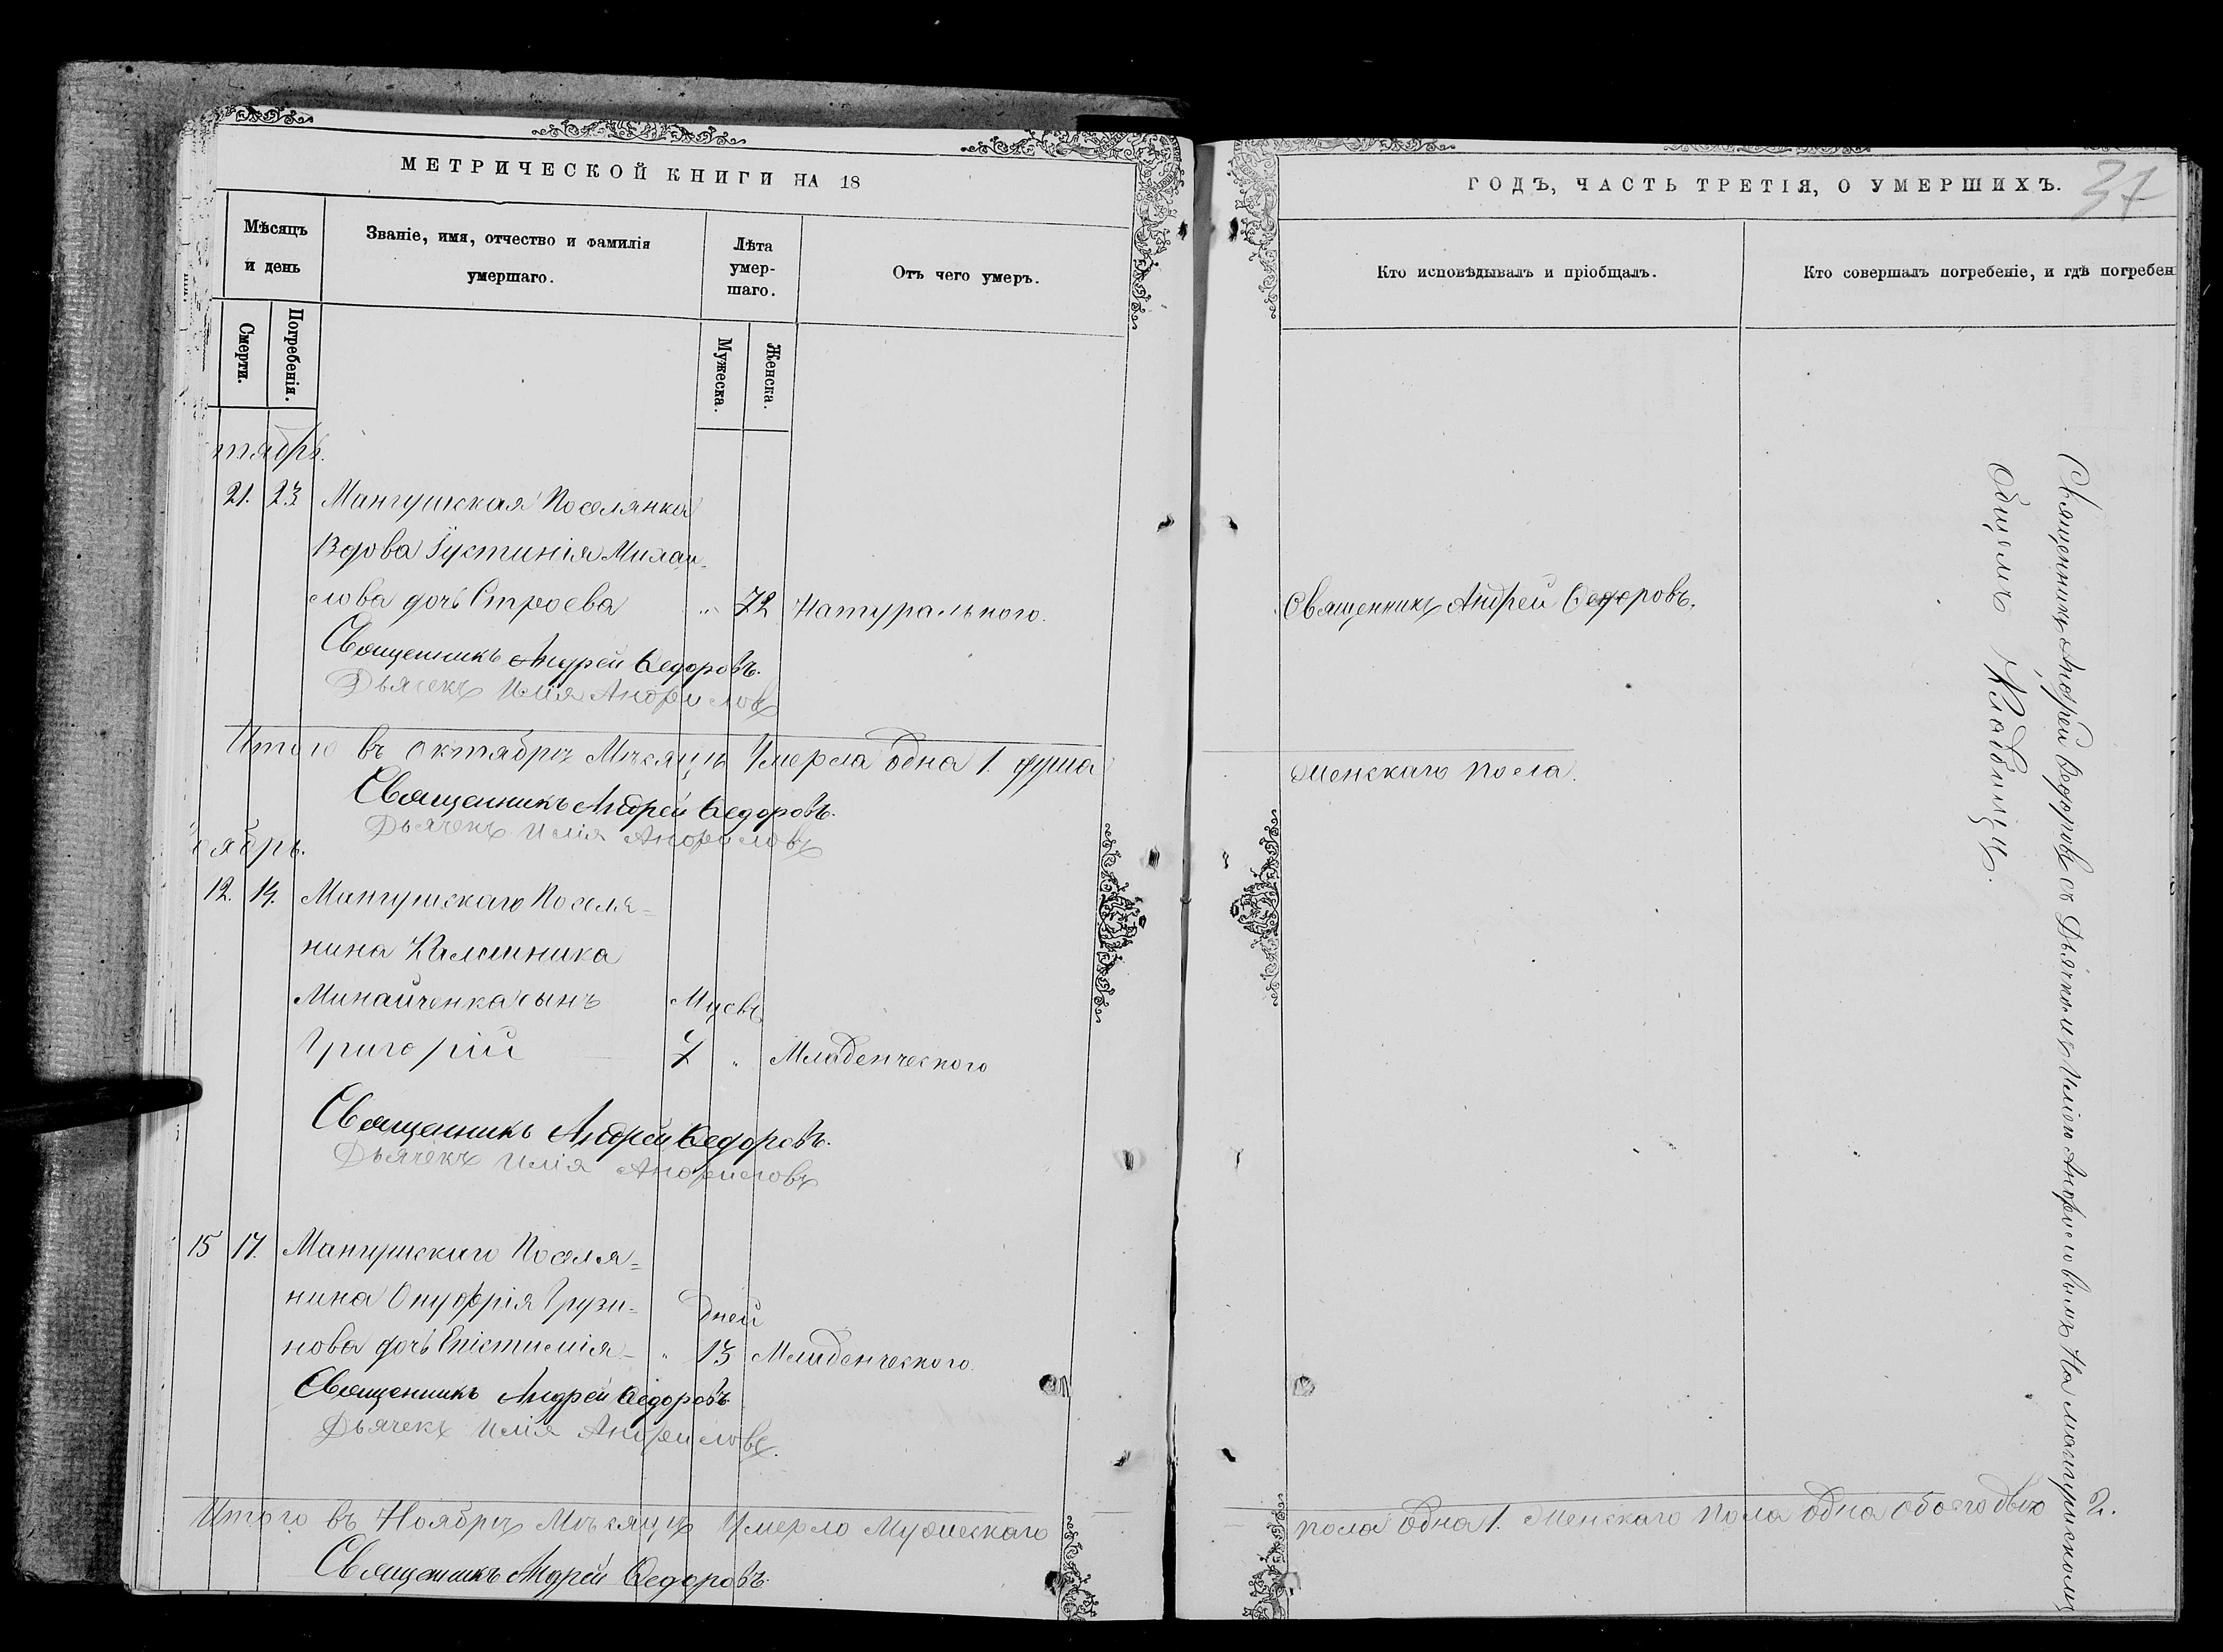 МЕТРИЧЕСКОЙ КНИГИ НА 18
Мѣсяцъ
и день
Званіе, имя, отчество и фамилія
умершаго.
Лѣта
умер-
шаго.
Отъ чего умеръ.
Смерти.
Погребенія.
Мужеска.
Женска.
тябрь.
21. 23 Мангушская Поселянка
Вдова Іустинія Михаи-
лова дочь Строева „ 72 Натуральнаго.
Священникъ Андрей Ѳедоровъ.
Дьячекъ Илія
Итого въ Октябрѣ Мѣсяцѣ Умерла одна 1. душа
Священникъ Андрей Ѳедоровъ.
Дьячекъ Илія
оябрь.
12. 14. Мангушскаго Поселя-
нина Калинника
Минайченка сынъ
Григорій „ Младенческого
Священникъ Андрей Ѳедоровъ.
Дьячекъ Илія
15 17. Мангушскаго Поселя-
нина Онуфрія Грузи- дней
нова дочь Епистимія „ 13 Младенческого.
Священникъ Андрей Ѳедоровъ
Дьячекъ Илія
Итого въ Ноябрѣ Мѣсяцѣ Умерло Мужескаго
Священникъ Андрей Ѳедоровъ.
ГОДЪ, ЧАСТЬ ТРЕТІЯ, О УМЕРШИХЪ.
37
Кто исповѣдывалъ и пріобщалъ.
Кто совершалъ погребеніе, и гдѣ погребен
Священникъ Андрей Ѳедоровъ.
женскаго пола.
Священникъ Андрей Ѳедоровъ съ Дьячкомъ Иліею На Мангушскомъ
общемъ Кладбищѣ.
пола одна 1. Женскаго пола одна обоего двѣ 2.